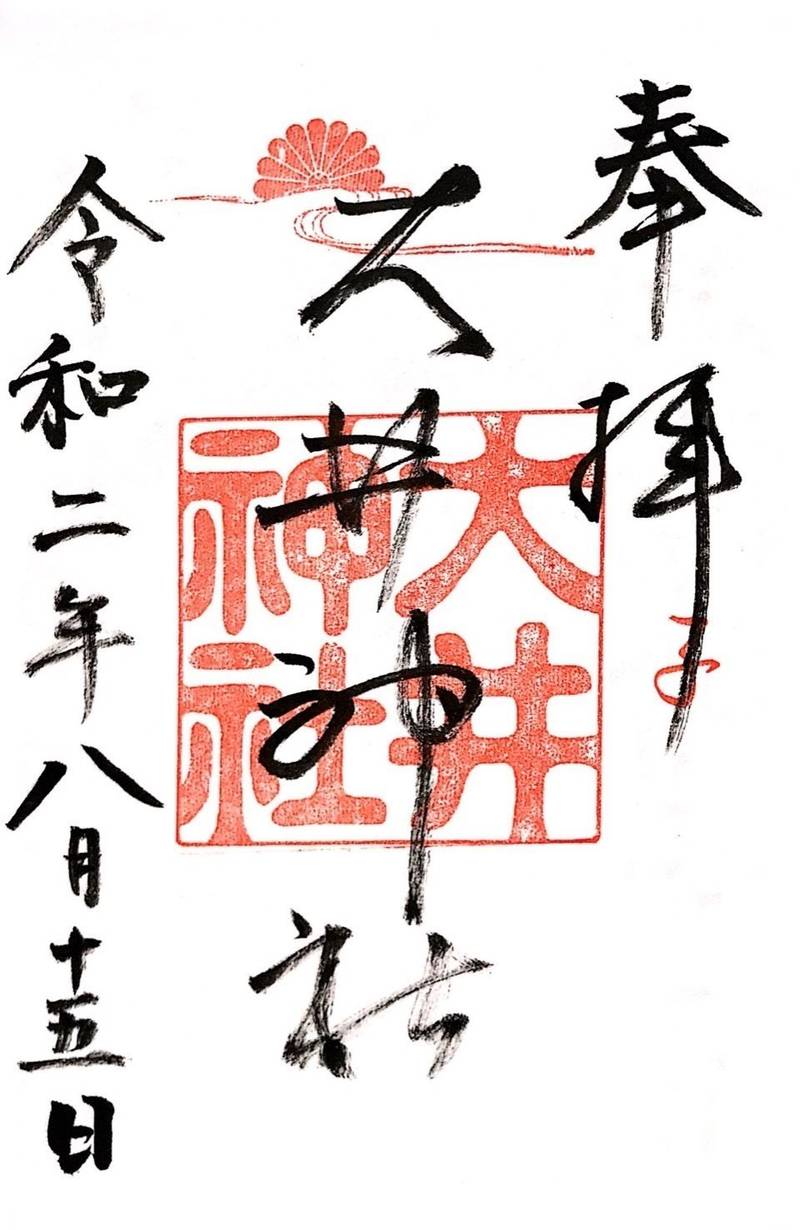 奉拝
大井神社
大井神社
令和二年八月十五日